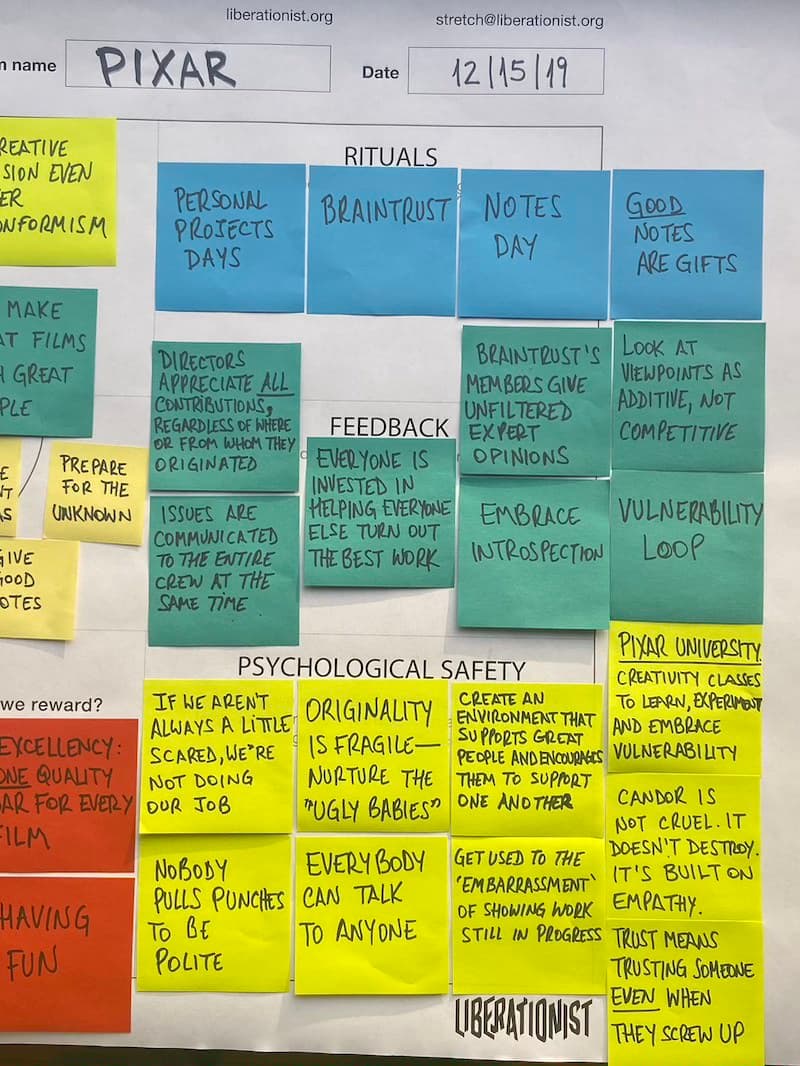 liberationist.org
stretch@liberationist.org
name
PIXAR
Date
12/15/19
EVEN
RITUALS
PERSONAL
PROJECTS
DAYS
BRAINTRUST
NOTES
DAY
GOOD
NOTES
ARE GIFTS
MAKE
FILMS
GREAT
PREPARE
FOR THE
UNKNOWN
DIRECTORS
APPRECIATE ALL
CONTRIBUTIONS,
REGARDLESS OF WHERE
OR FROM WHOM THEY
ORIGINATED
ISSUES ARE
COMMUNICATED
TO THE ENTIRE
CREW AT THE
SAME TIME
FEEDBACK
EVERYONE IS
INVESTED IN
HELPING EVERYONE
ELSE TURN OUT
THE BEST WORK
BRAINTRUST'S
MEMBERS GIVE
UNFILTERED
EXPERT
OPINIONS
EMBRACE
INTROSPECTION
LOOK AT
VIEWPOINTS AS
ADDITIVE, NOT
COMPETITIVE
VULNERABILITY
LOOP
we reward?
EXCELLENCY:
ONE QUALITY
FOR EVERY
FILM
HAVING
FUN
PSYCHOLOGICAL SAFETY
IF WE AREN'T
ALWAYS A LITTLE
SCARED, WE'RE
NOT DOING
OUR JOB
ORIGINALITY
IS FRAGILE—
NURTURE THE
"UGLY BABIES"
CREATE AN
ENVIRONMENT THAT
SUPPORTS GREAT
PEOPLE AND ENCOURAGES
THEM TO SUPPORT
ONE ANOTHER
PIXAR UNIVERSITY.
CREATIVITY CLASSES
TO LEARN, EXPERIMENT
AND EMBRACE
VULNERABILITY
NOBODY
PULLS PUNCHES
TO BE
POLITE
EVERYBODY
CAN TALK
TO ANYONE
GET USED TO THE
'EMBARRASSMENT'
OF SHOWING WORK
STILL IN PROGRESS
CANDOR IS
NOT CRUEL. IT
DOESN'T DESTROY.
IT'S BUILT ON
EMPATHY.
TRUST MEANS
TRUSTING SOMEONE
EVEN WHEN
THEY SCREW UP
LIBERATIONIST